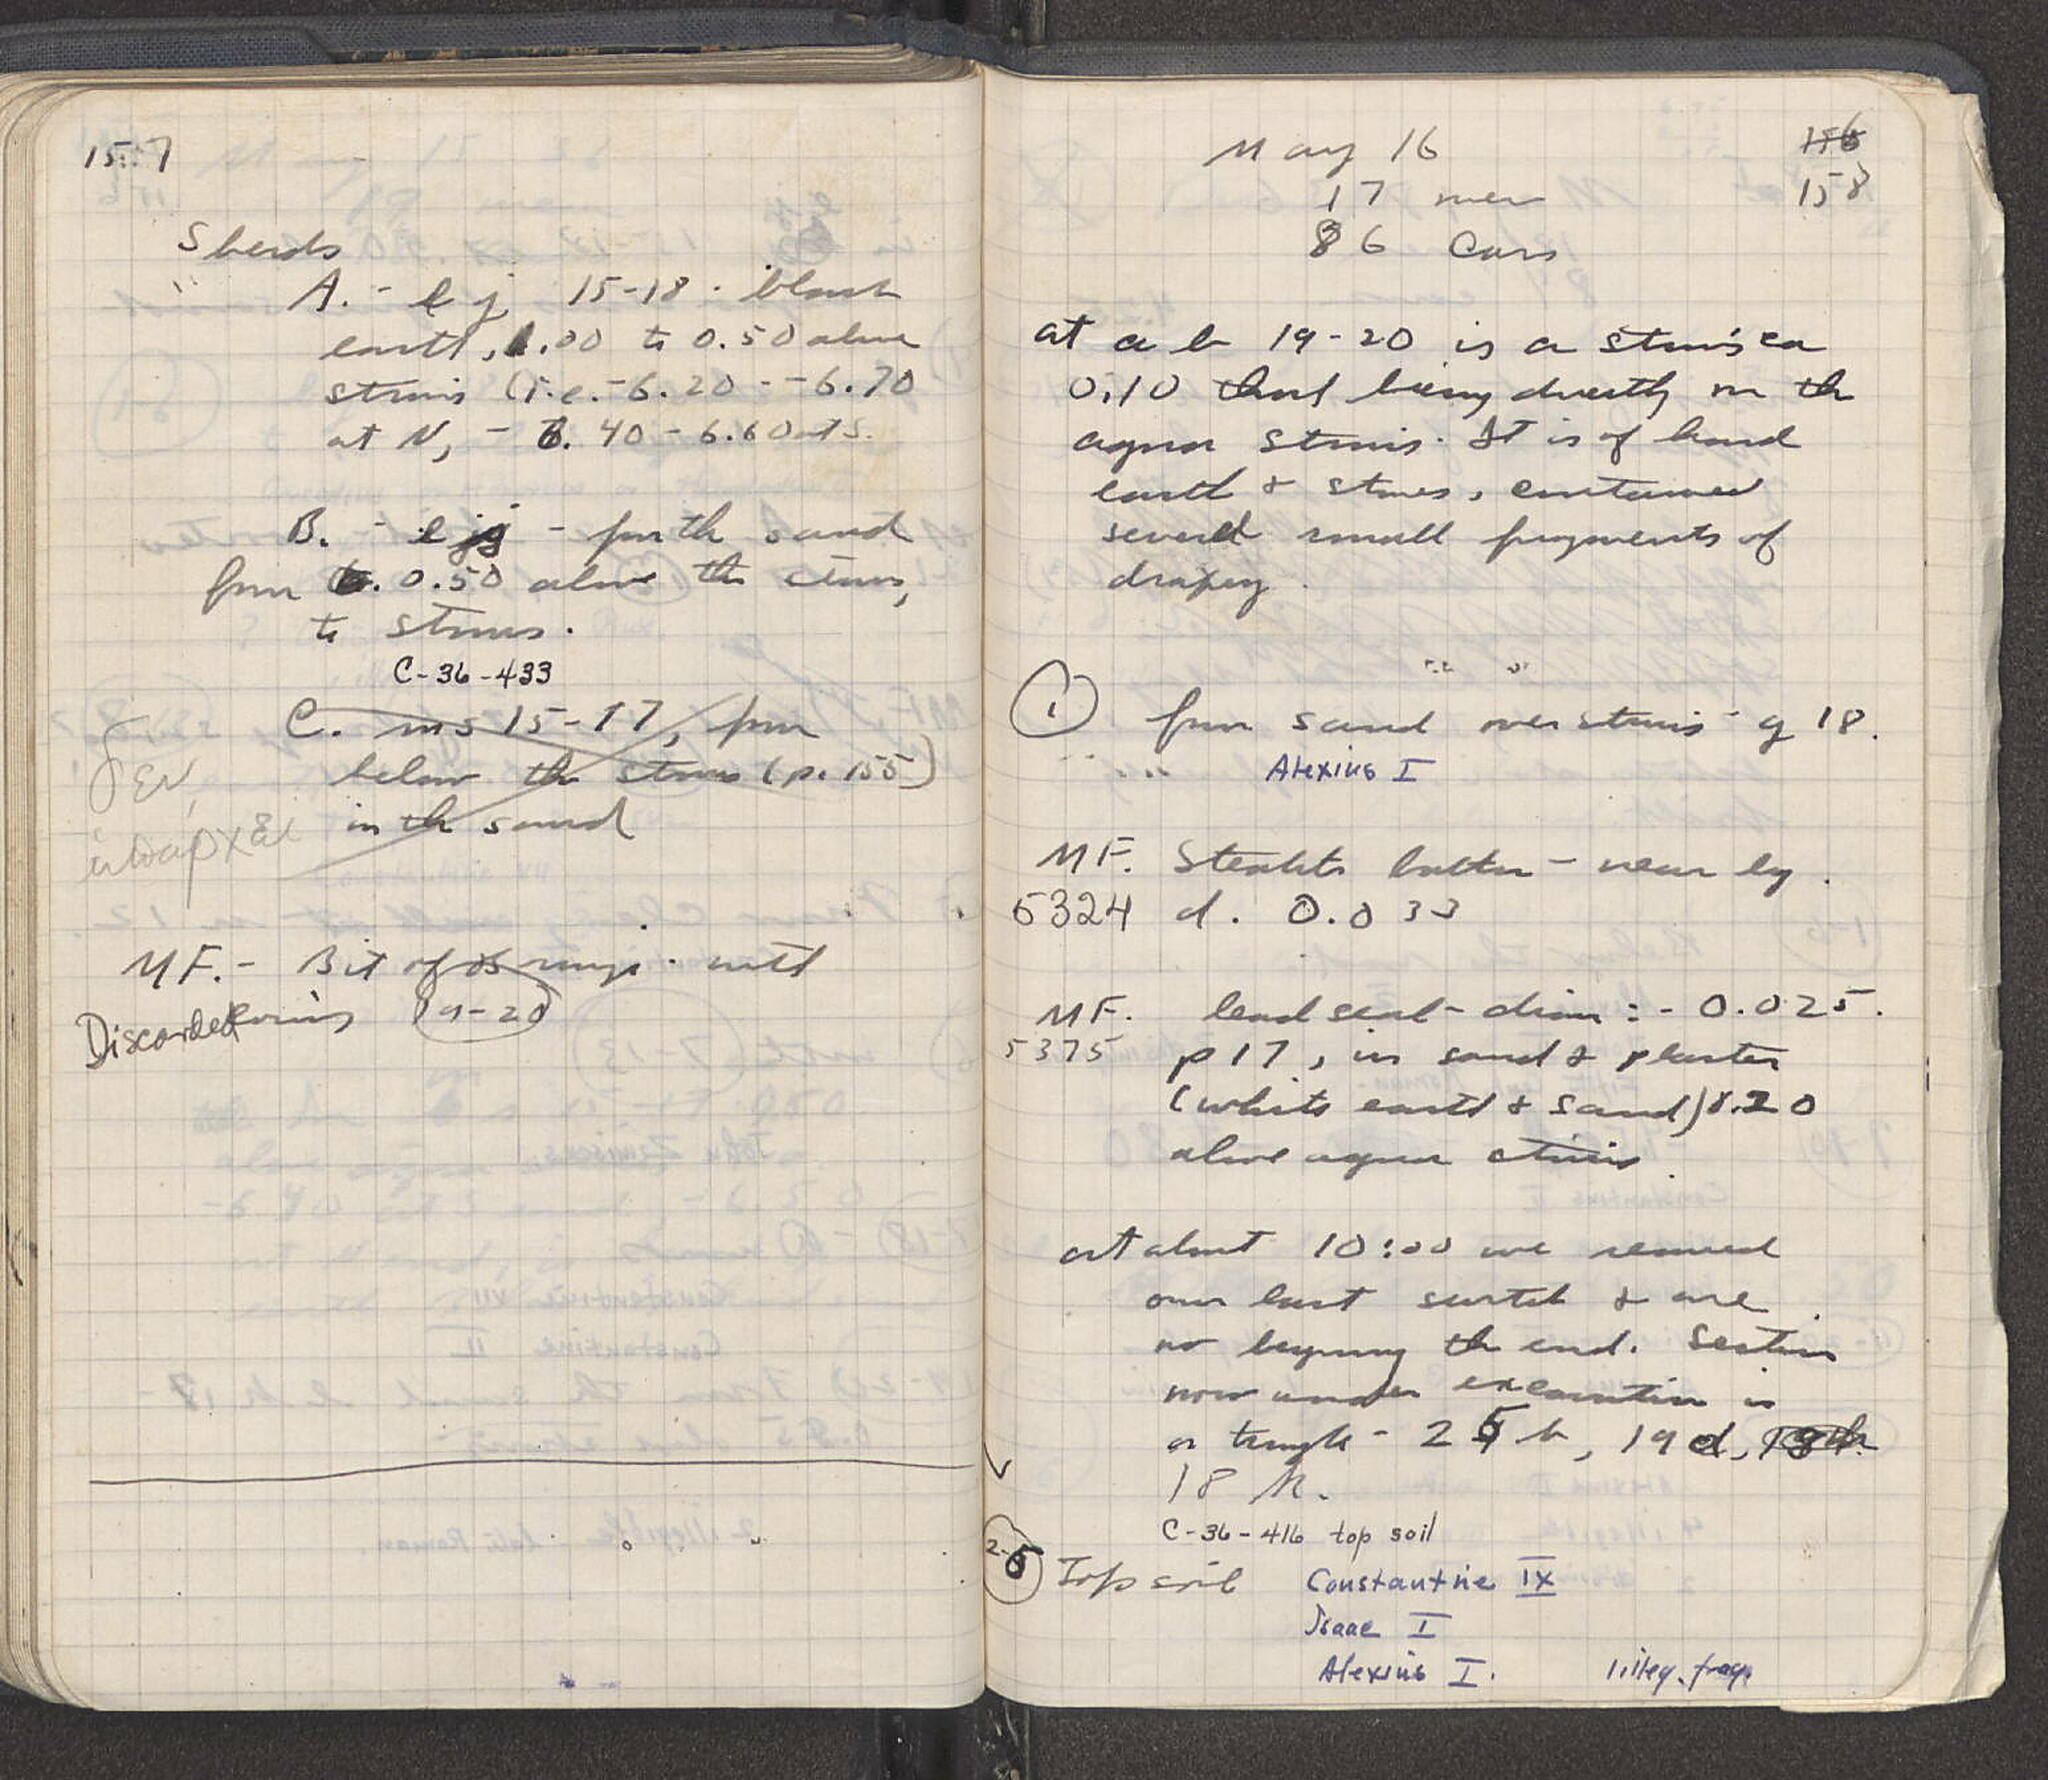 157
Sherds
A. - e j 15-18 · black
earth, 1.00 to 0.50 above
strosis (i.e. -6.20 - -6.70
at N, - 6.40 - 6.60 at S.
B. - e j - from the sand
from 0.50 above the strosis,
to strosis.
C-36-433
C. ms 15-17, from
below the strosis (p. 155)
in the sand
δεν
ὑπάρχει
MF. - Bit of ring · with
Discarded coins 19-20
May 16
156
158
17 men
86 cars
at a b 19-20 is a strosis ca
0.10 that being directly on the
agora strosis. It is of hard
earth & stones, contained
several small fragments of
drapery.
1 from sand over strosis g 18.
Alexius I
MF. Steatite button - near by.
5324 d. 0.033
MF. lead seal - diam: - 0.025.
5375 p 17, in sand & plaster
(white earth & sand) 0.20
above agora strosis.
at about 10:00 we removed
our last switch & are
now begining the end. Section
now under excavation is
a triangle - 25 b, 19 d,
18 k.
C-36-416 top soil
2-5 Top soil Constantine IX
Isaac I
Alexius I. 1 illeg. frag.